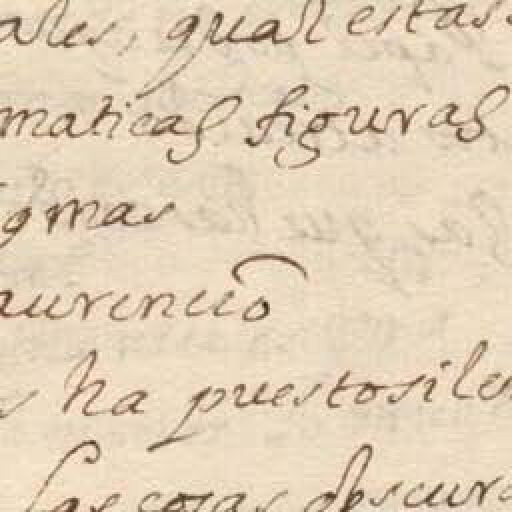 ales, qual estas
maticas figuras
igmas
s ha puesto sile
las cosas obscura